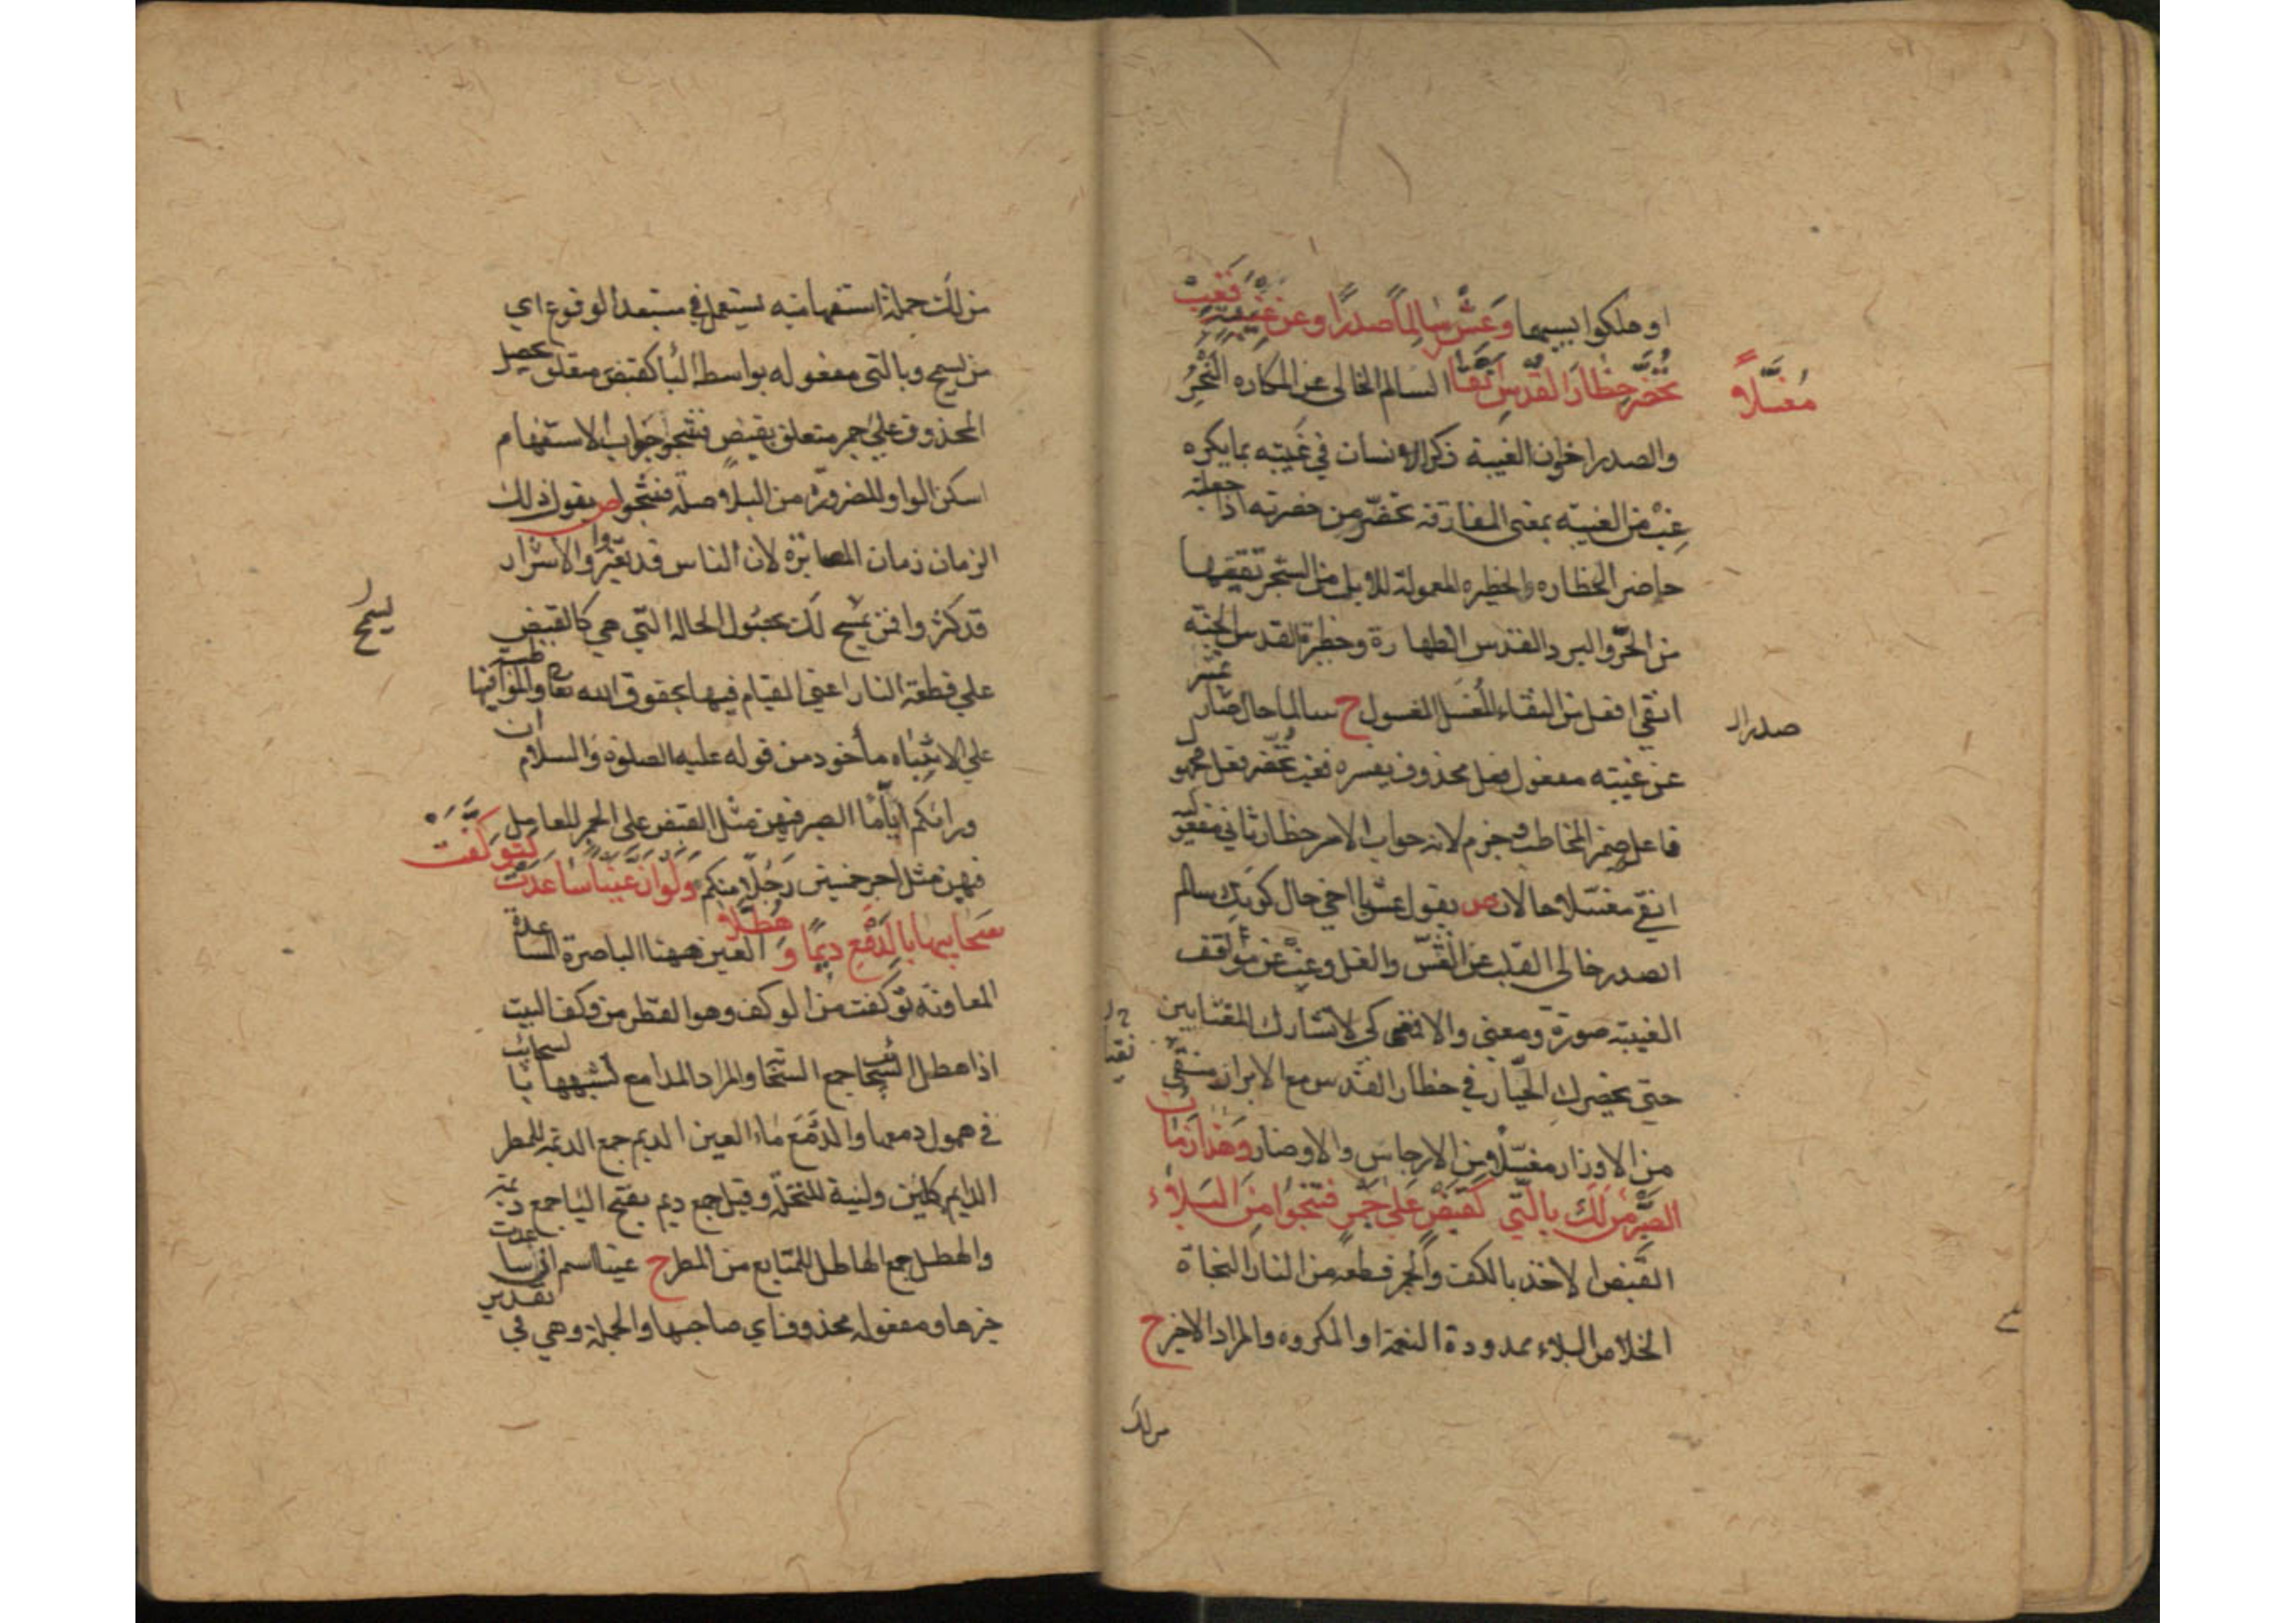 او هلكوا بسببها وَعِشْ سَالِماً صدراً وعن غِيْبَةٍ فَغِبْ
تُحَضَّرْ حِظَارَ القُدْسِ اَنْقَا السالم الخالي عن المكاره
مُغَسَّلاً
والصدر اخوان الغيبة ذكر الانسان في غيبته بما يكره
غِبْ من الغيبه بمعنى المفارقة تحضّر من حضرته اذا جعلته
حاضر الحظاره والحظيره المعمولة للابل من الشجر تقيها
من الحرّ والبرد القدس الطهارة وحظيرة القدس الجنة
انقى افعل من النقاء المُغَسَّل المغسول ح سالما حال
صدرا
عن غيبته مفعول فعل محذوف يفسره فغب تحضّر فعل
فاعل ضمير المخاطب وجزم لانه جواب الامر حظار ثاني
انقى مغسّلا حالان ص يقول عش يا اخي حال كونك سالم
الصدر خالي القلب عن الغشّ والغل وغب عن
الغيبة صورة ومعنى والا كي لا تشارك المغتابين
حتى يحضرك في حظار القدس مع الابرار منقّى
من الاوزار مغسّلا من الارجاس والاوضار وهذا زمان
الصَّبْرِ مَنْ لَكَ بِالَّتي كَقَبْضٍ عَلى جَمْرٍ فَتَنْجُوا مِنَ البَلاء
القبض الاخذ بالكف والجمر قطعة من النار النجاة
الخلاص البلاء ممدودة او المكروه والمراد الاخير ح
من لك
من لك جملة استفهامية يستعمل في مستبعد الوقوع اي
من يسمح وبالتي مفعوله بواسطة البا كقبض متعلق
المحذوف على جمر متعلق بقبض فتنجو جواب الاستفهام
اسكن الواو للضرورة من البلا صلة فتنجوا ص يقول ذلك
الزمان زمان المصابرة لان الناس قد تغيروا والاشرار
قد كثروا فمن يسمح لك بحصول الحالة التي هي كالقبض
يسمح
على قطعة النار اعني القيام فيها بحقوق الله تعالى
على الانتباه مأخوذ من قوله عليه الصلوة والسلام ان
ورائكم ايّاما الصبر فيهن مثل القبض على الجمر للعامل
فيهن مثل اجر خمسين رَجُلاً منكم وَلَوْ اَنَّ عَيْناً سَاعَدَتْ لَتَوَكَّفَتْ
سَحَابُها بِالدَّمْعِ دِيَماً وَهُطَّلاَ العين ههنا الباصرة المساعدة
المعاونة توكفت من الوكف وهو القطر من وكف البيت
اذا هطل السحائب جمع السحاب والمراد المدامع لشبهها بالسحائب
في همول دمعها والدَّمْع ماء العين الديم جمع الديمة للمطر
الدايم كلين ولينة للنخلة وقيل جمع ديم بفتح اليا جمع ديمة
والهطل جمع الهاطل للمتتابع من المطر ح عينا اسم ان ساعدت
خبرها ومفعوله محذوف اي صاحبها والجملة وهي في تقدير